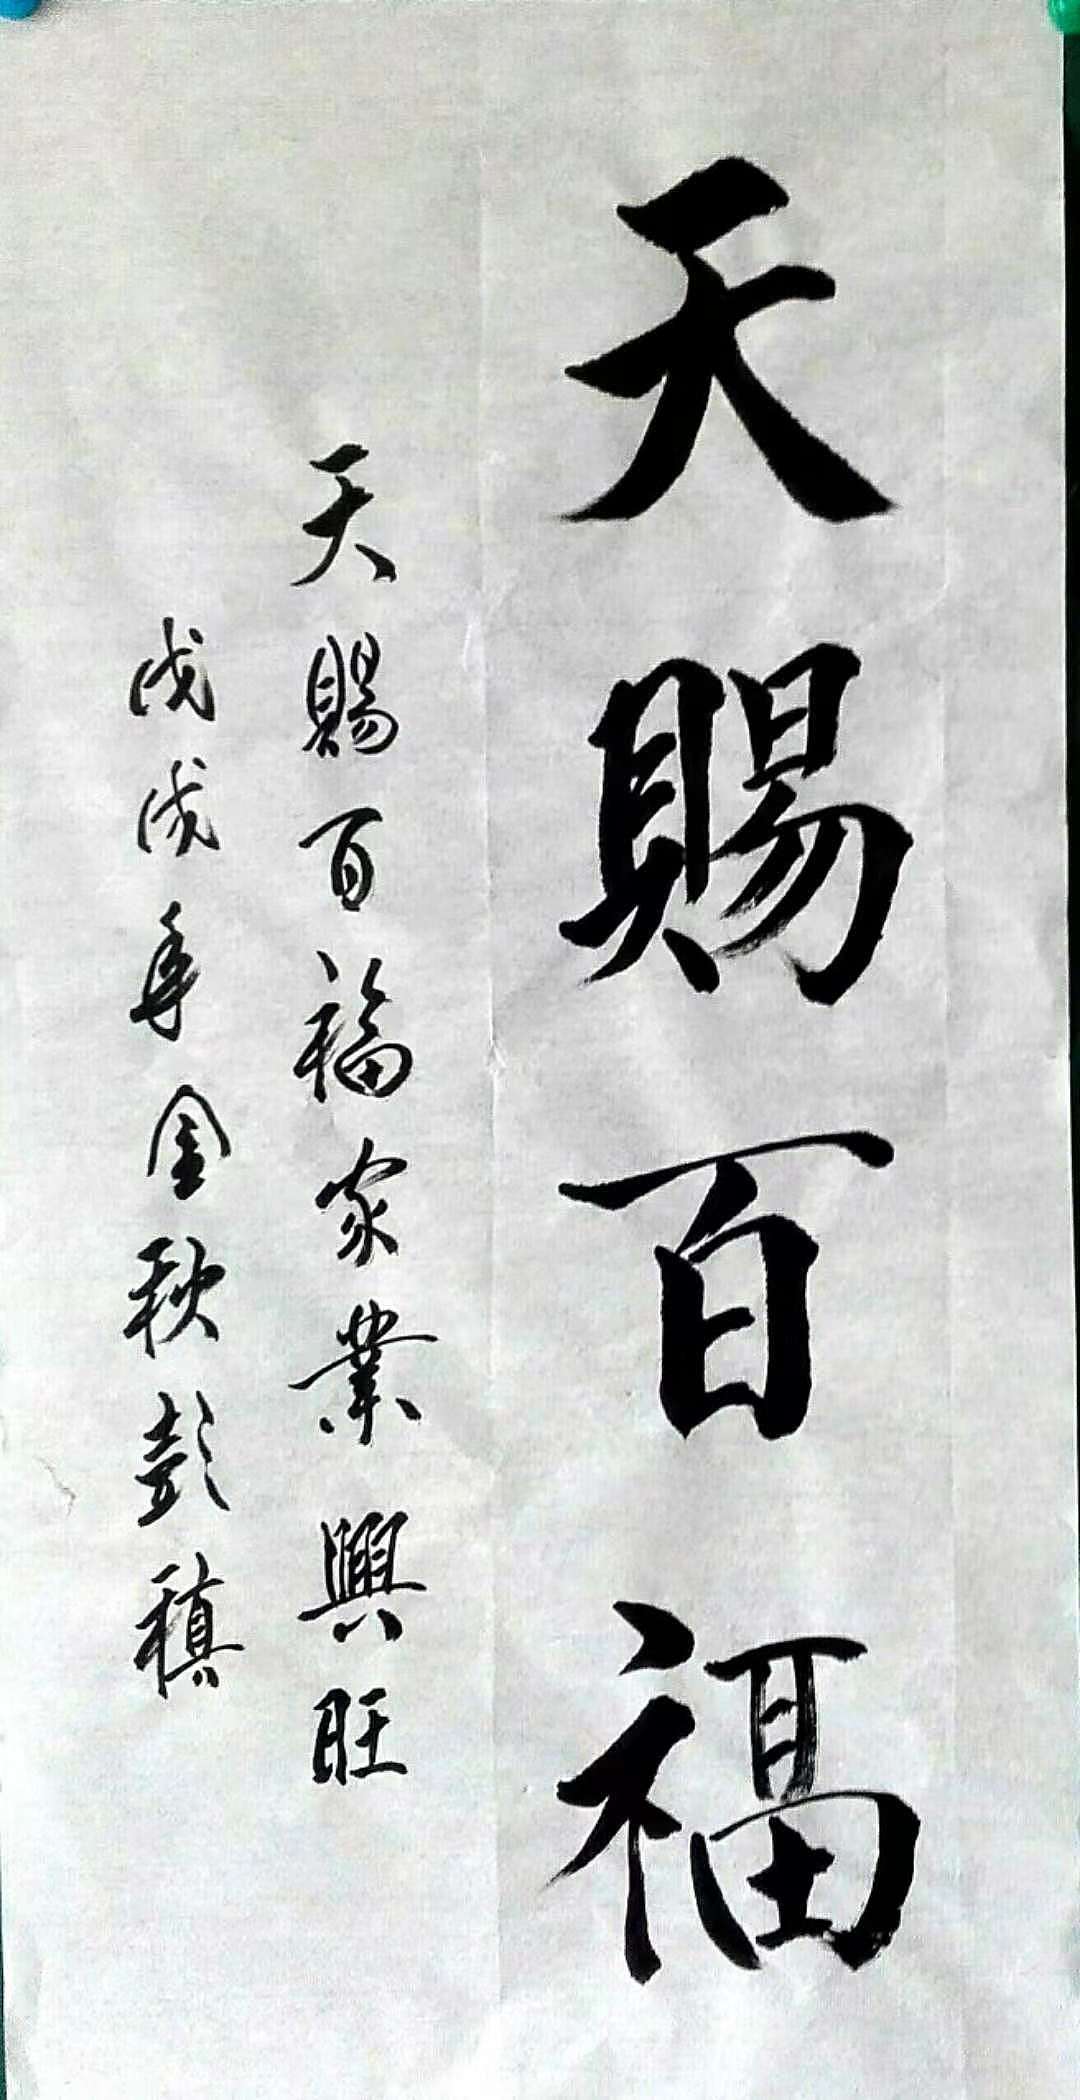 天賜百福
天賜百福家業興旺
戊戌年金秋彭稹